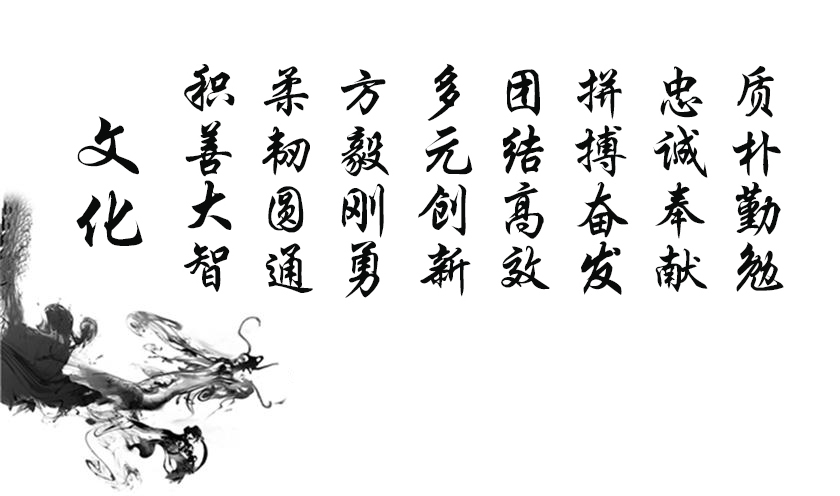 质朴勤勉
忠诚奉献
拼搏奋发
团结高效
多元创新
方毅刚勇
柔韧圆通
积善大智
文化